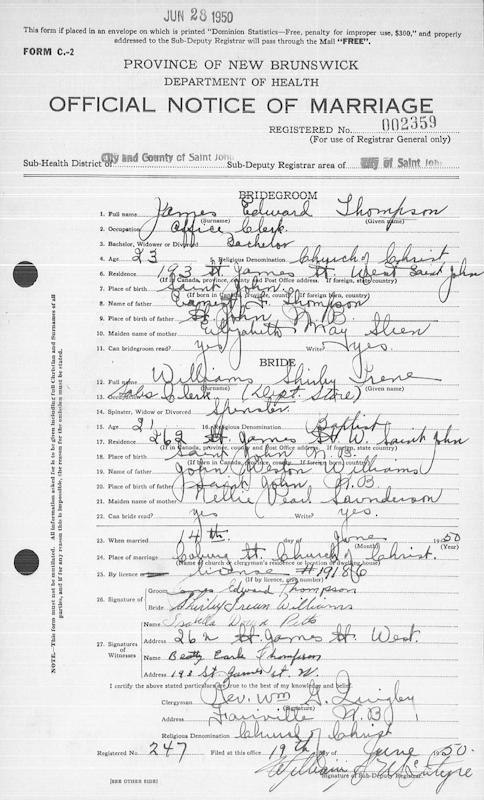 JUN 28 1950
This form if placed in an envelope on which is printed "Dominion Statistics—Free, penalty for improper use, $300," and properly
addressed to the Sub-Deputy Registrar will pass through the Mail "FREE".
FORM C.-2
PROVINCE OF NEW BRUNSWICK
DEPARTMENT OF HEALTH
OFFICIAL NOTICE OF MARRIAGE
REGISTERED No. 002359
(For use of Registrar General only)
Sub-Health District of City and County of Saint John Sub-Deputy Registrar area of City of Saint John
BRIDEGROOM
1. Full name James Edward Thompson
(Surname) (Given name)
2. Occupation Office Clerk
3. Bachelor, Widower or Divorced Bachelor
4. Age 23 5. Religious Denomination Church of Christ
6. Residence 193 St. James St. West Saint John
(If in Canada, province, county and Post Office address. If foreign, state country)
7. Place of birth Saint John
(If born in Canada, province, county. If foreign born, country)
8. Name of father Earnest Thompson
9. Place of birth of father St. John N.B.
10. Maiden name of mother Elizabeth May
11. Can bridegroom read? yes Write? yes.
BRIDE
12. Full name Williams Shirley Irene
(Surname) (Given name)
13. Occupation Sales Clerk (Dept. Store)
14. Spinster, Widow or Divorced Spinster
15. Age 21 16. Religious Denomination Baptist
17. Residence 262 St. James St. W. Saint John
(If in Canada, province, county and Post Office address. If foreign, state country)
18. Place of birth Saint John N.B.
(If born in Canada, province, county. If foreign born, country)
19. Name of father John Weston Williams
20. Place of birth of father Saint John N.B.
21. Maiden name of mother Nellie Pearl Saunderson
22. Can bride read? yes Write? yes.
23. When married 14th. day of June 1950
(Month) (Year)
24. Place of marriage Coburg St. Church of Christ.
(Name of church & clergyman's residence or location of dwelling house)
25. By licence license #19186
(If by licence, give number)
Groom James Edward Thompson
26. Signature of
Bride Shirley Irene Williams
Address 262 St. James St. West.
27. Signatures of Witnesses
Name Betty Earle Thompson
Address 193 St. James St. W.
I certify the above stated particulars are true to the best of my knowledge and belief.
Clergyman Rev. Wm G. Quigley
(Signature)
Address Fairville N.B.
Religious Denomination Church of Christ
Registered No. 247 Filed at this office 19th day of June 1950.
William J. McIntyre
Signature of Sub-Deputy Registrar.
[SEE OTHER SIDE]
NOTE.—This form must not be mutilated. All information asked for is to be given including full Christian and Surnames of all
parties, and if for any reason this is impossible, the reason for the omission must be stated.